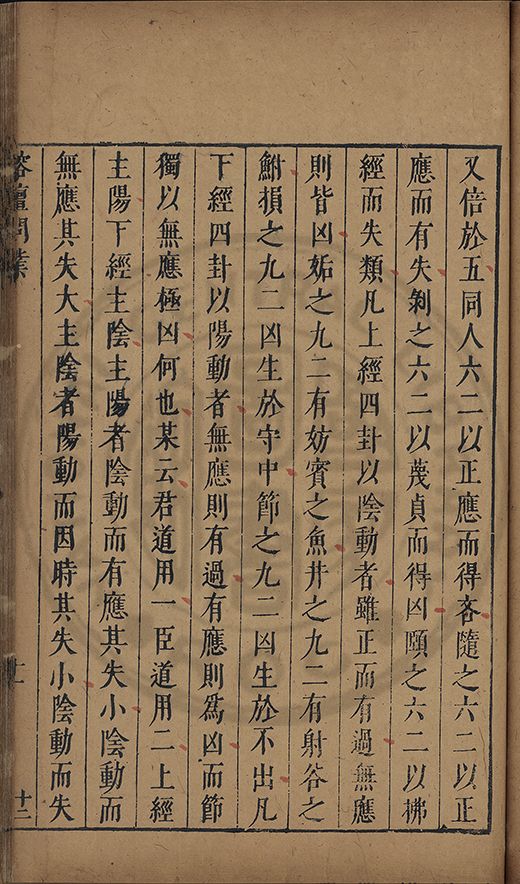 又倍於五同人六二以正應而得吝隨之六二以正
應而有失剝之六二以蔑貞而得凶頤之六二以拂
經而失類凡上經四卦以陰動者雖正而有過無應
則皆凶姤之九二有妨賓之魚井之九二有射谷之
鮒損之九二凶生於守中節之九二凶生於不出凡
下經四卦以陽動者無應則有過有應則爲凶而節
獨以無應極凶何也某云君道用一臣道用二上經
主陽下經主陰主陽者陰動而有應其失小陰動而
無應其失大主陰者陽動而因時其失小陰動而失
榕壇問業
十二